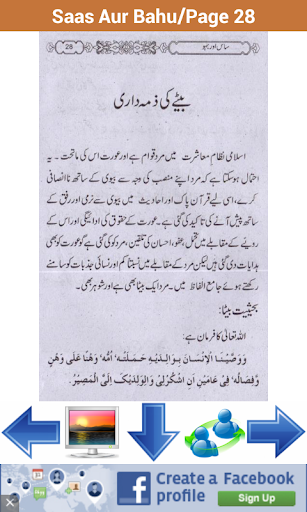 Saas Aur Bahu/Page 28
28
ساس اور بہو
بیٹے کی ذمہ داری
اسلامی نظامِ معاشرت میں مرد قوام ہے اور عورت اس کی ماتحت۔ یہ
احتمال ہو سکتا ہے کہ مرد اپنے منصب کی وجہ سے بیوی کے ساتھ ناانصافی
کرے، اسی لیے قرآن پاک اور احادیث میں بیوی سے نرمی اور رفق کے
ساتھ پیش آنے کی تاکید کی گئی ہے۔ عورت کے حقوق کی ادائیگی اور اس کے
رویے کے مقابلے میں تحمل، عفو، احسان کی تلقین، مرد کو کی گئی ہے گو عورت کو بھی
ہدایات دی گئی ہیں لیکن مرد کے مقابلے میں نسبتاً کم اور نسائی جذبات کو سامنے
رکھتے ہوئے جامع الفاظ میں۔ مرد ایک بیٹا بھی ہے اور شوہر بھی۔
بحیثیت بیٹا:
اللہ تعالیٰ کا فرمان ہے:
وَوَصَّيْنَا الْاِنْسَانَ بِوَالِدَيْهِ حَمَلَتْهُ اُمُّهُ وَهْنًا عَلٰى وَهْنٍ
وَّفِصَالُهُ فِيْ عَامَيْنِ اَنِ اشْكُرْلِيْ وَلِوَالِدَيْكَ اِلَيَّ الْمَصِيْرُ
Create a Facebook
profile
Sign Up Now